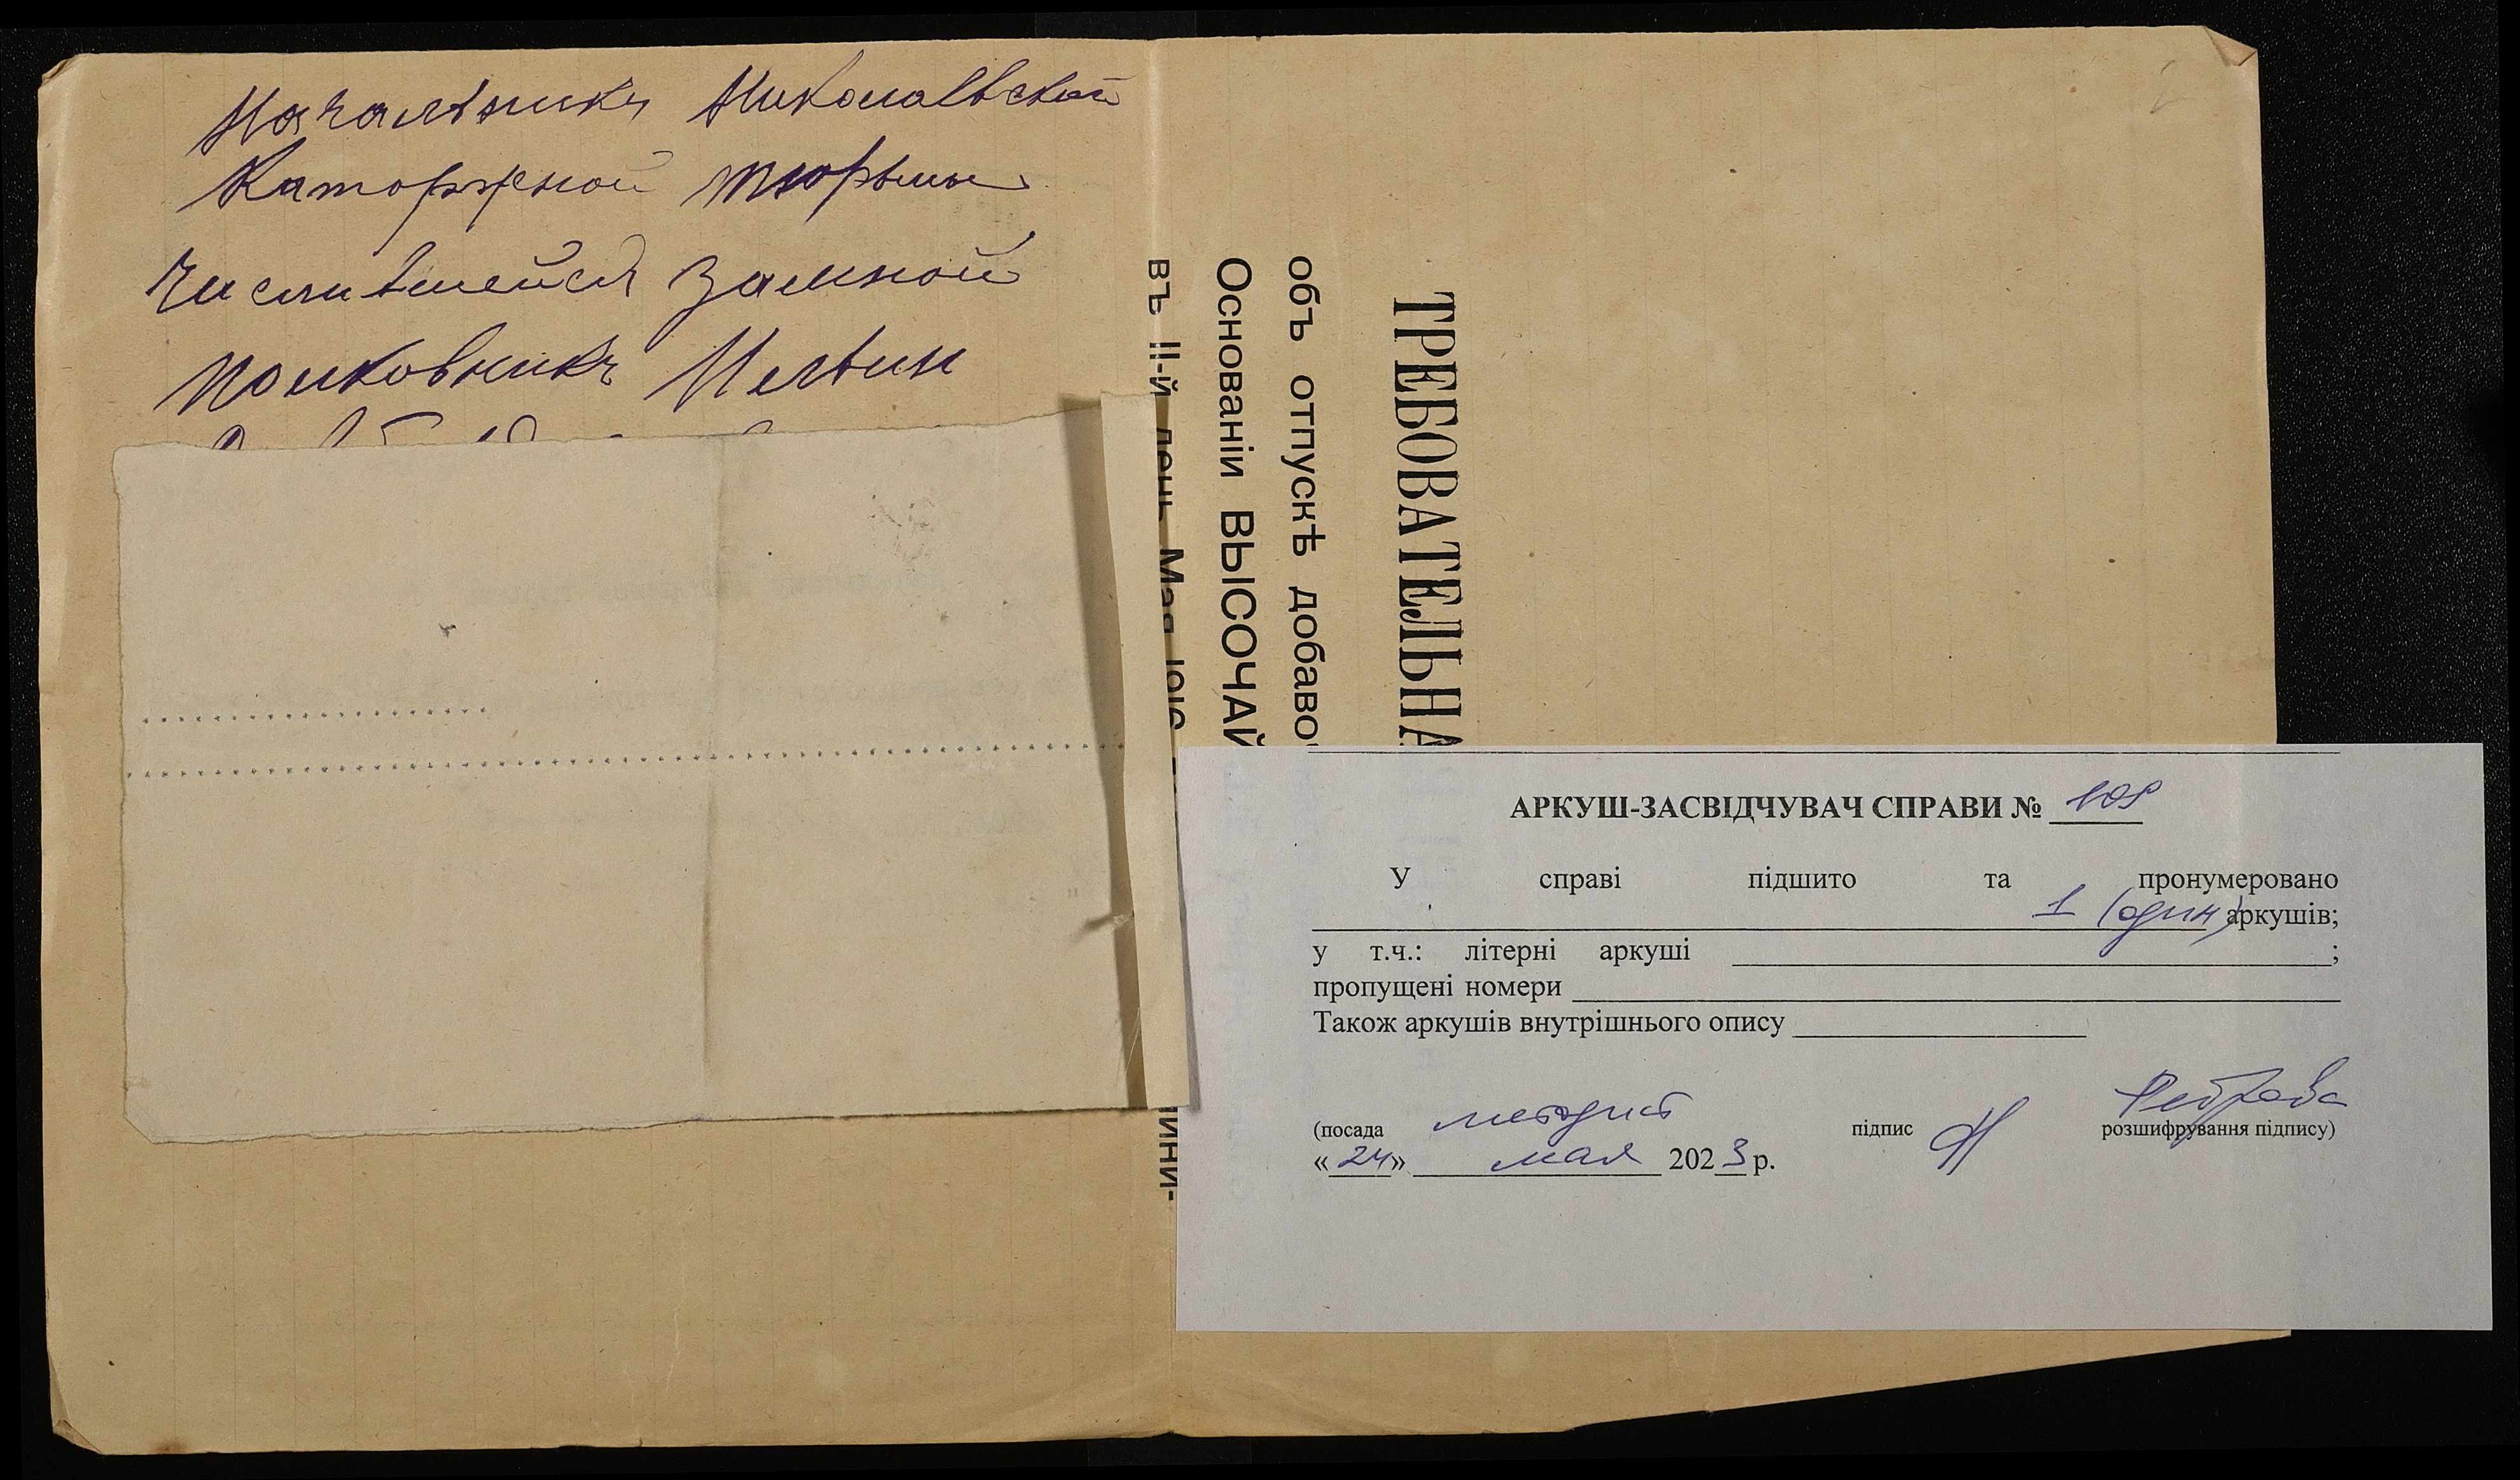 Начальникъ Николаевской
Каторжной тюрьмы
числившейся замной
полковникъ Ильин
ТРЕБОВАТЕЛЬНА
объ отпускѣ добаво
Основаніи ВЫСОЧАЙ
въ II-й день Мая
АРКУШ-ЗАСВІДЧУВАЧ СПРАВИ № 109
У справі підшито та пронумеровано
1 (один) аркушів;
у т.ч.: літерні аркуші ;
пропущені номери
Також аркушів внутрішнього опису
(посада методист підпис розшифрування підпису)
« 24 » мая 2023 р.